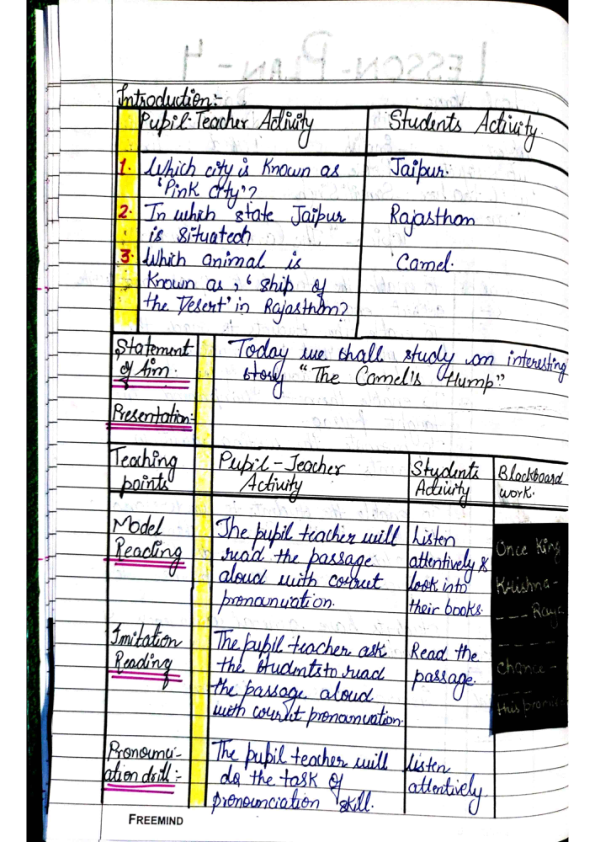 LESSON-PLAN-4
Introduction:-
Pupil-Teacher Activity
Students Activity
1. Which city is known as
'Pink city'?
Jaipur.
2. In which state Jaipur
is situated
Rajasthan
3. Which animal is
known as, 'ship of
the Desert' in Rajasthan?
Camel.
Statement
of Aim.
Today we shall study an interesting
story "The Camel's Hump"
Presentation:-
Teaching
points
Pupil-Teacher
Activity
Students
Activity
Blackboard
work.
Model
Reading
The pupil teacher will
read the passage
aloud with correct
pronunciation.
Listen
attentively &
look into
their books.
Once King
Krishna-
---- Raya
----
chance -
his promise
Imitation
Reading
The pupil teacher ask
the students to read
the passage aloud
with correct pronunvation.
Read the
passage.
Pronounci-
ation drill:-
The pupil teacher will
do the task of
pronounciation skill.
Listen
attentively
FREEMIND